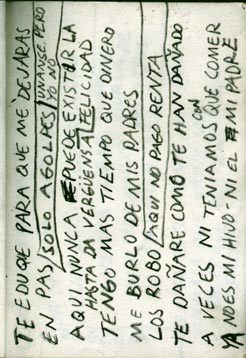 TE EDUQE PARA QUE ME DEJARAS
EN PAS SOLO AGOLPES UNANSE PERO
YO NO
AQUI NUNCA PUEDE EXISTIR LA
HASTA DA VERGÜENSA FELICIDAD
TENGO MAS TIEMPO QUE DINERO
ME BURLO DE MIS PADRES
LOS ROBO AQUI NO PAGO RENTA
TE DAÑARE COMO TE HAN DAÑADO
A VECES NI TENIAMOS CON QUE COMER
YA NO ES MI HIJO - NI EL MI PADRE